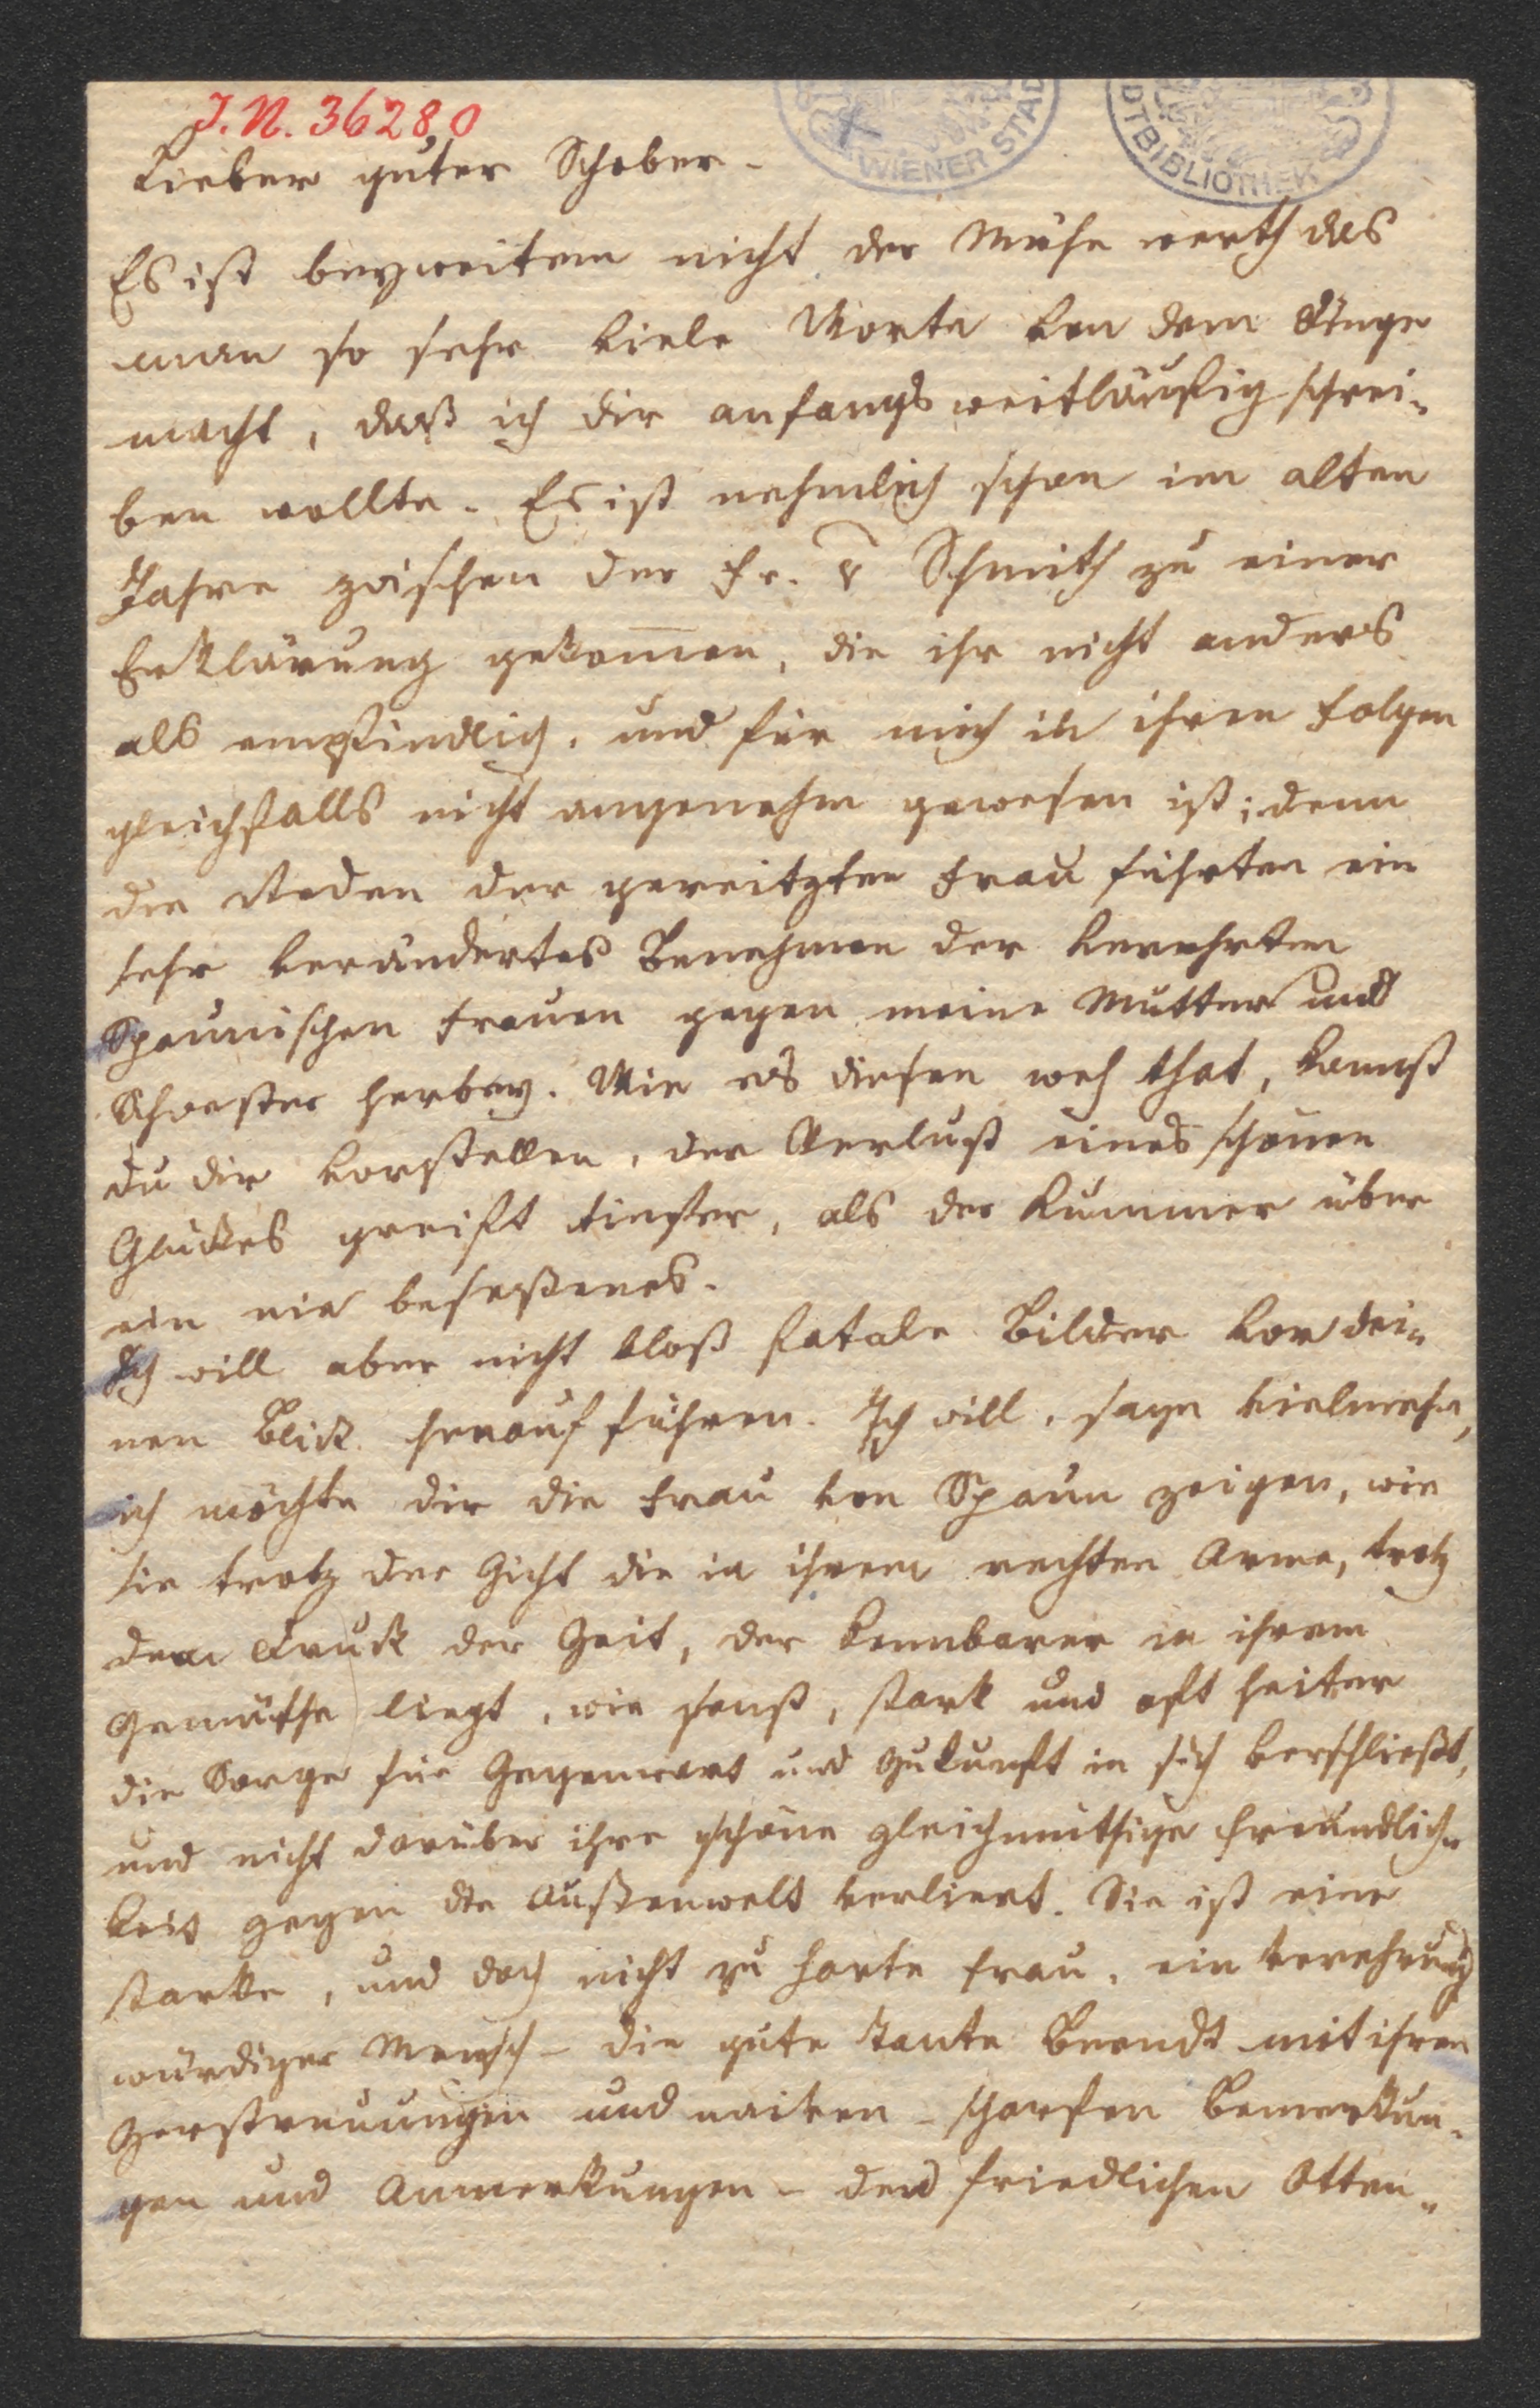 J. N. 36280
WIENER STADTBIBLIOTHEK
Lieber guter Schober –
Es ist beyweitem nicht der Mühe werth das
man so sehr viele Worte von dem Dinge
macht, daß ich dir anfangs weitläufig schrei-
ben wollte. Es ist nehmlich schon im alten
Jahre zwischen der Fr. v Schmith zu einer
Erklärung gekom̄en, die ihr nicht anders
als empfindlich, und für mich in ihren Folgen
gleichfalls nicht angenehm gewesen ist; denn
die Reden der gereitzten Frau führten ein
sehr verändertes Benehmen der verehrten
Spaunischen Frauen gegen meine Mutter und
Schwester herbey. Wie es diesen weh that, kannst
du dir vorstellen, der Verlust eines schönen
Glückes greift tiefer, als der Kummer über
ein nie beseßenes.
Ich will aber nicht bloß fatale Bilder vor dei-
nen Blick herauf führen. Ich will, sage vielmehr,
ich möchte dir die Frau von Spaun zeigen, wie
sie trotz der Gicht die in ihrem rechten Arme, trotz
dem Druck der Zeit, der kennbarer in ihrem
Gemüthe liegt, wie sonst, stark und oft heiter
die Sorge für Gegenwart und Zukunft in sich verschließt,
und nicht darüber ihre schöne gleichmüthige Freundlich-
keit gegen die Außenwelt verliert. Sie ist eine
starke, und doch nicht zu harte Frau, ein verehrung
würdiger Mensch – die gute Tante Brandt mit ihren
Zerstreuungen und naiven – scharfen Bemerkun-
gen und Anmerkungen – den friedlichen Otten-